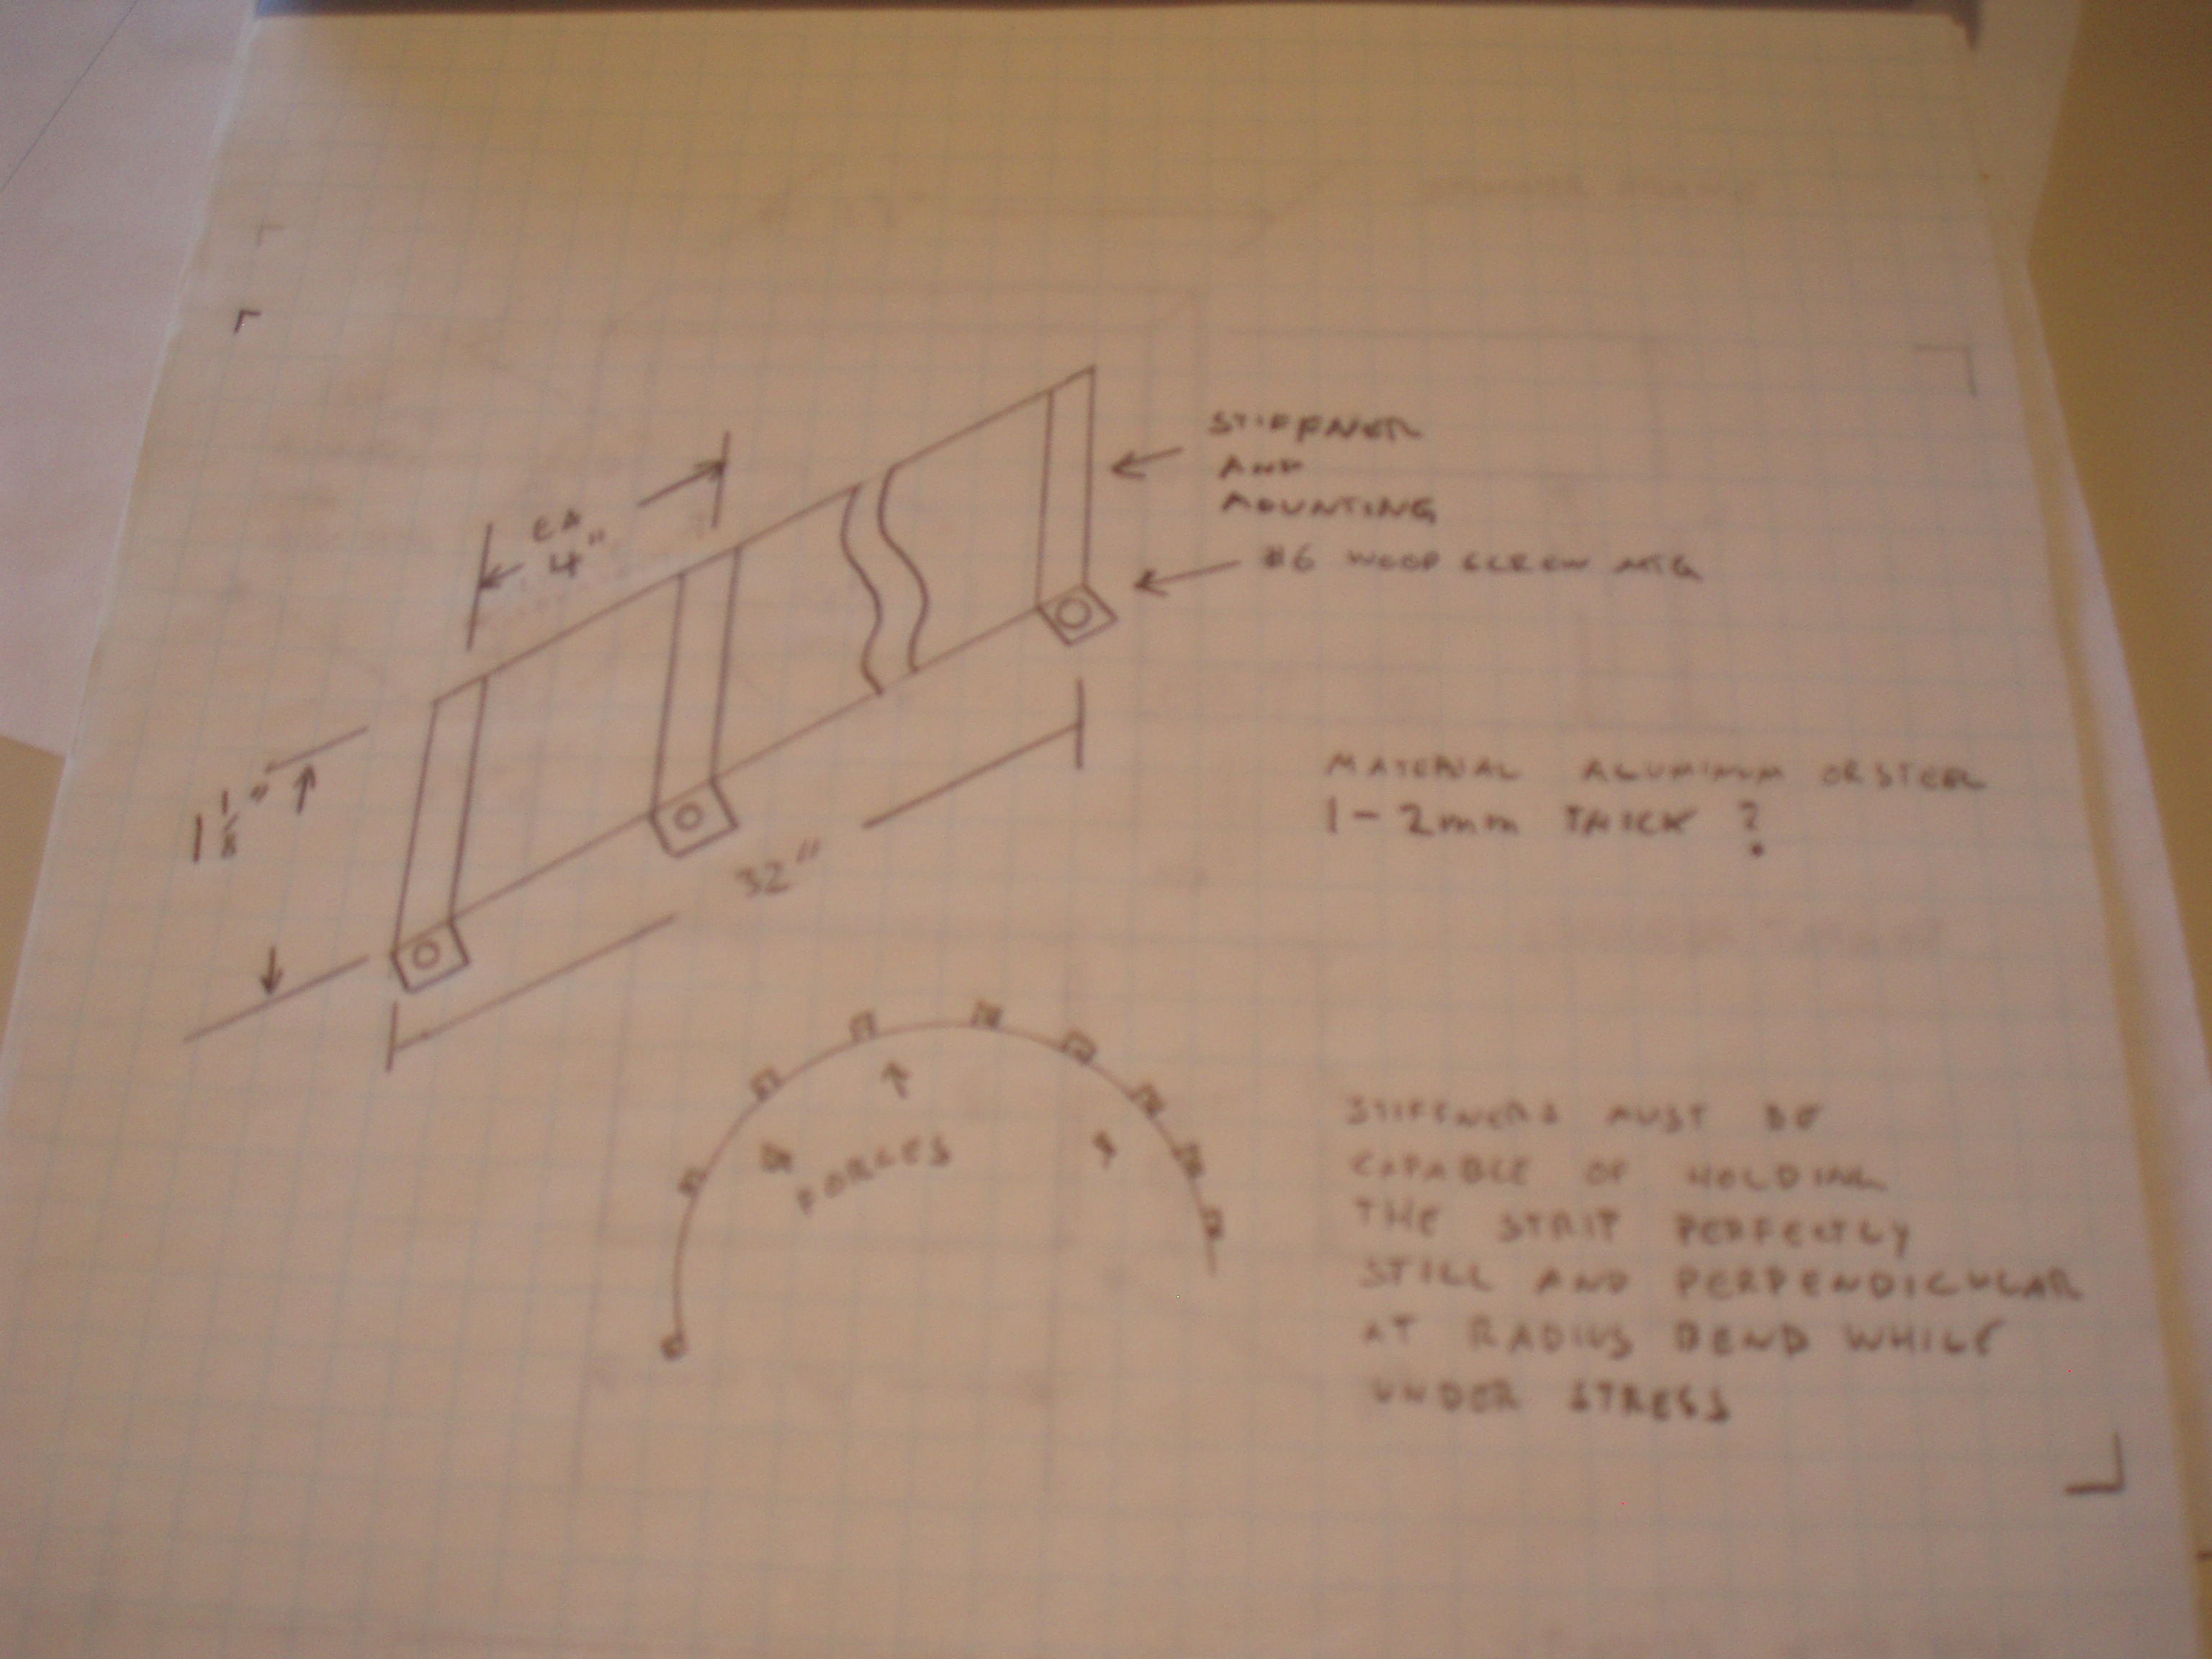 STIFFNER
AND
MOUNTING
#6 WOOD SCREW MTG
EA
4"
1 1/8"
32"
MATERIAL ALUMINUM OR STEEL
1-2mm THICK ?
FORCES
STIFFNERS MUST BE
CAPABLE OF HOLDING
THE STRIP PERFECTLY
STILL AND PERPENDICULAR
AT RADIUS BEND WHILE
UNDER STRESS